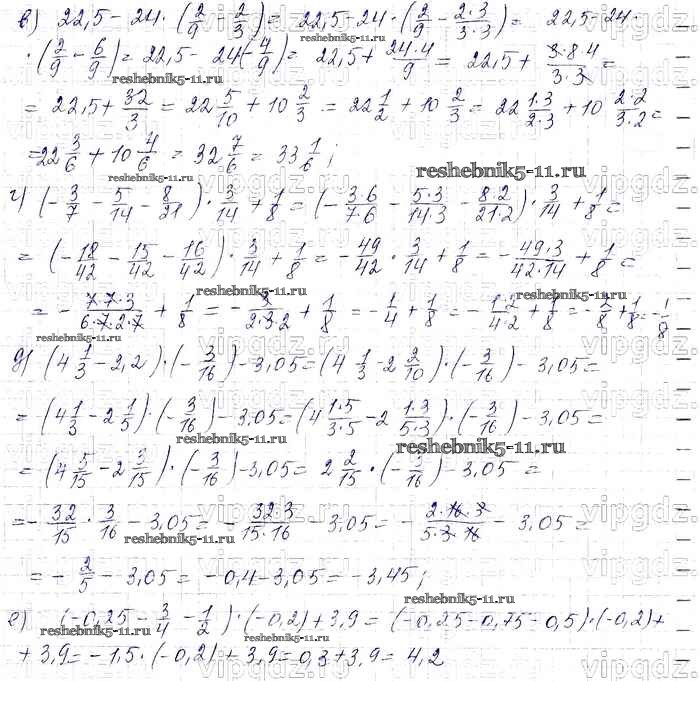 в) 22,5 - 24 · (2/9 - 2/3) = 22,5 - 24 · (2/9 - 2·3/3·3) = 22,5 - 24 ·
· (2/9 - 6/9) = 22,5 - 24(-4/9) = 22,5 + 24·4/9 = 22,5 + 3·8·4/3·3 =
= 22,5 + 32/3 = 22 5/10 + 10 2/3 = 22 1/2 + 10 2/3 = 22 1·3/2·3 + 10 2·2/3·2 =
= 22 3/6 + 10 4/6 = 32 7/6 = 33 1/6;
г) (-3/7 - 5/14 - 8/21) · 3/14 + 1/8 = (-3·6/7·6 - 5·3/14·3 - 8·2/21·2) · 3/14 + 1/8 =
= (-18/42 - 15/42 - 16/42) · 3/14 + 1/8 = -49/42 · 3/14 + 1/8 = -49·3/42·14 + 1/8 =
= -7·7·3/6·7·2·7 + 1/8 = -3/2·3·2 + 1/8 = -1/4 + 1/8 = -1·2/4·2 + 1/8 = -2/8 + 1/8 = -1/8
д) (4 1/3 - 2,2) · (-3/16) - 3,05 = (4 1/3 - 2 2/10) · (-3/16) - 3,05 =
= (4 1/3 - 2 1/5) · (-3/16) - 3,05 = (4 1·5/3·5 - 2 1·3/5·3) · (-3/16) - 3,05 =
= (4 5/15 - 2 3/15) · (-3/16) - 3,05 = 2 2/15 · (-3/16) - 3,05 =
= -32/15 · 3/16 - 3,05 = -32·3/15·16 - 3,05 = -2·16·3/5·3·16 - 3,05 =
= -2/5 - 3,05 = -0,4 - 3,05 = -3,45;
е) (-0,25 - 3/4 - 1/2) · (-0,2) + 3,9 = (-0,25 - 0,75 - 0,5) · (-0,2) +
+ 3,9 = -1,5 · (-0,2) + 3,9 = 0,3 + 3,9 = 4,2
reshebnik5-11.ru
vipgdz.ru